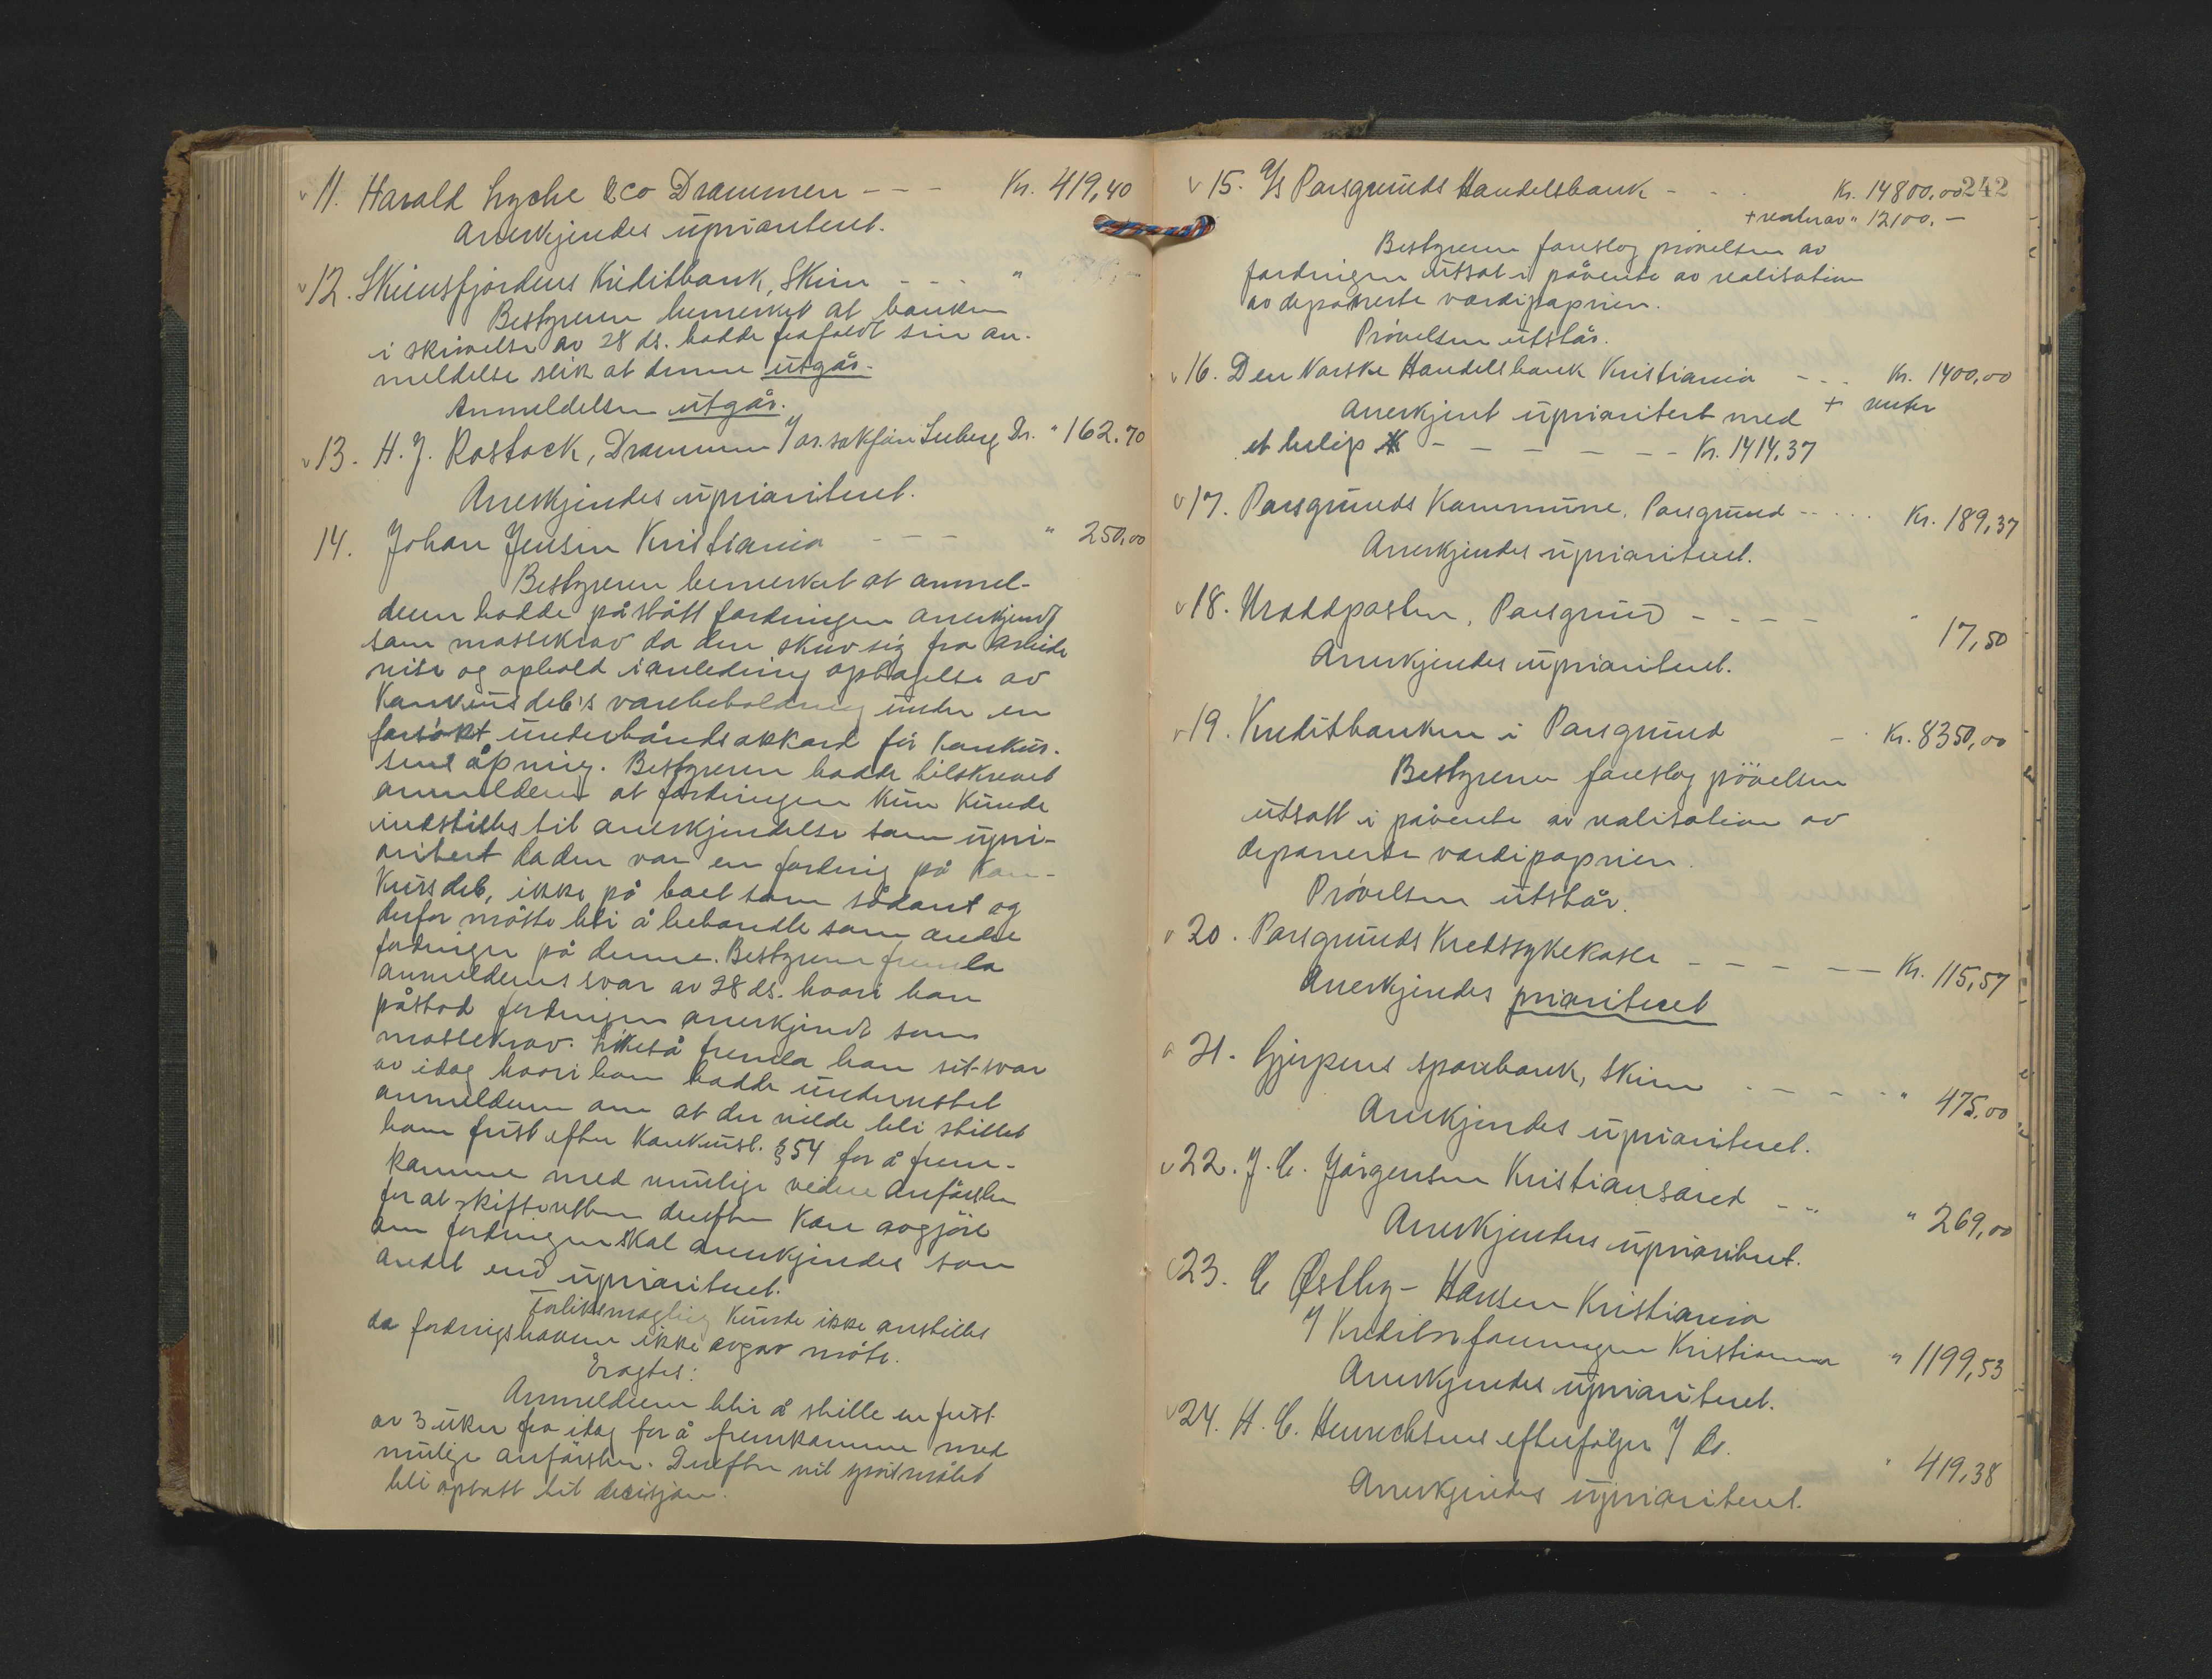 11. Harald Lyche & Co Drammen - - - Kr. 419,40
Anerkjendes uprioritert.
12. Skiensfjordens Kreditbank, Skien - - - "
Bestyreren bemerket at banken
i skrivelse av 28 ds. hadde frafaldt sin an-
meldelse slik at denne utgår.
Anmeldelsen utgår.
13. H. J. Rostock, Drammen / or. sakfører Dr. " 162.70
Anerkjendes uprioriteret.
14. Johan Jensen Kristiania - - - " 250,00
Bestyreren bemerket at anmel-
deren hadde påstått fordringen anerkjendt
som massekrav da den skrev sig fra arbeide
reise og ophold i anledning optagelse av
Konkursdeb's varebeholdning under en
forsøkt underhåndsakkord før konkur-
sens åpning. Bestyreren hadde tilskrevet
anmelderen at fordringen kun kunde
indstilles til anerkjendelse som upri-
oritert da den var en fordring på Kon-
kursdeb, ikke på boet som sådant og
derfor måtte bli å behandle som andre
fordringer på denne. Bestyreren fremla
anmelderens svar av 28 ds. hvori han
påstod fordringen anerkjendt som
massekrav. Likeså fremla han sit svar
av idag hvori han hadde underrettet
anmelderen om at der vilde bli stillet
ham frist efter Konkursl. § 54 for å frem-
komme med mulige videre anførsler
for at skifteretten derefter kan avgjøre
om fordringen skal anerkjendes som
andet end uprioriteret.
Forliksmægling kunde ikke anstilles
da fordringshaveren ikke avgav møte.
Eragtes:
Anmelderen blir å stille en frist
av 3 uker fra idag for å fremkomme med
mulige anførsler. Derefter vil spørsmålet
bli optatt til decisjon.
242
15. A/S Porsgrunds Handelsbank - - - Kr. 14800,00
+ renter av " 12100,-
Bestyreren foreslog prøvelsen av
fordringen utsat i påvente av realisation
av deponerte værdipapirer.
Prøvelsen utstår.
16. Den Norske Handelsbank Kristiania - - - Kr. 1400,00
+ renter
Anerkjent uprioritert med
et beløp - - - - - - Kr. 1414,37
17. Porsgrunds Kommune, Porsgrund - - - - - Kr. 189,37
Anerkjendes uprioriteret.
18. Uræddposten, Porsgrund - - - - " 17,50
Anerkjendes uprioriteret.
19. Kreditbanken i Porsgrund - - Kr. 8350,00
Bestyreren foreslog prøvelsen
utsatt i påvente av realisation av
deponerte værdipapirer.
Prøvelsen utstår.
20. Porsgrunds Kredssykekasse - - - - - Kr. 115,57
Anerkjendes prioriteret
21. Gjerpens sparebank, Skien - - - - " 475,00
Anerkjendes uprioriteret.
22. J. C. Jørgensen Kristiansand - - " 269,00
Anerkjendes uprioriteret.
23. C Østby-Hansen Kristiania
/ Kreditorforeningen Kristiania " 1199,53
Anerkjendes uprioriteret.
24. H. C. efterfølger / Do. " 419,38
Anerkjendes uprioriteret.